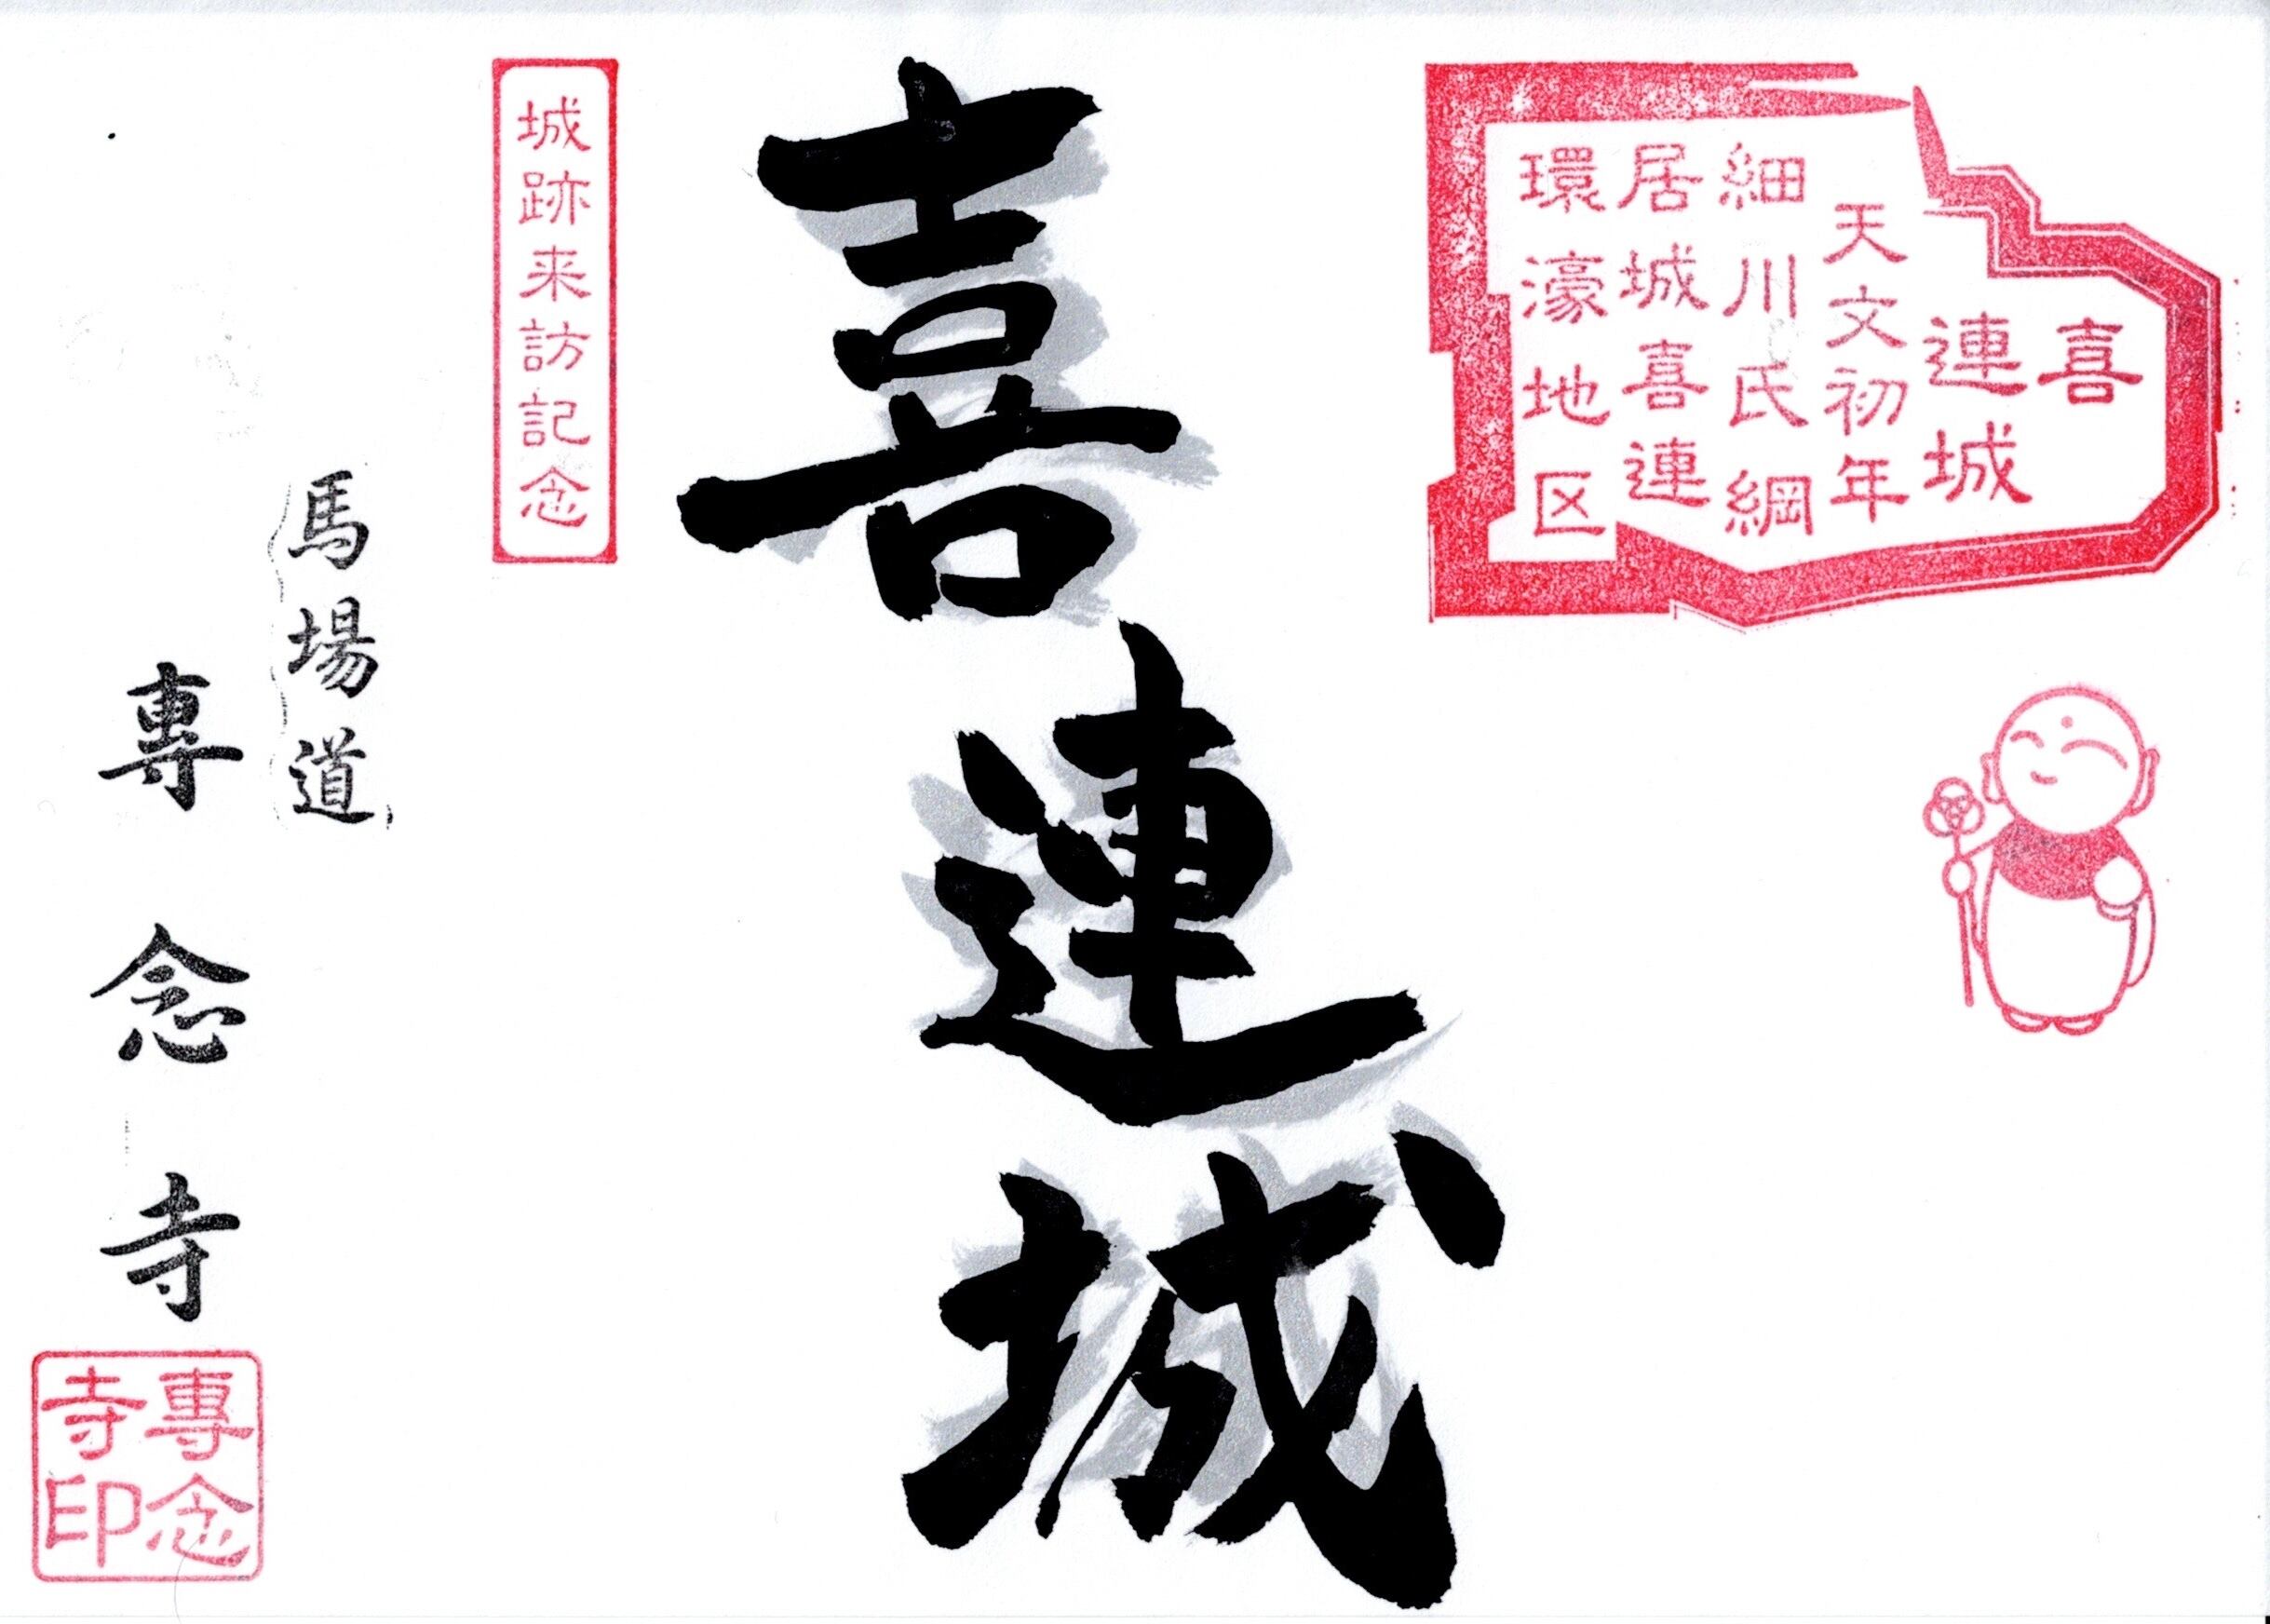 喜
連城
天文初年
細川氏綱
居城喜連
環濠地区
喜連城
城跡来訪記念
馬場道
專念寺
專念
寺印